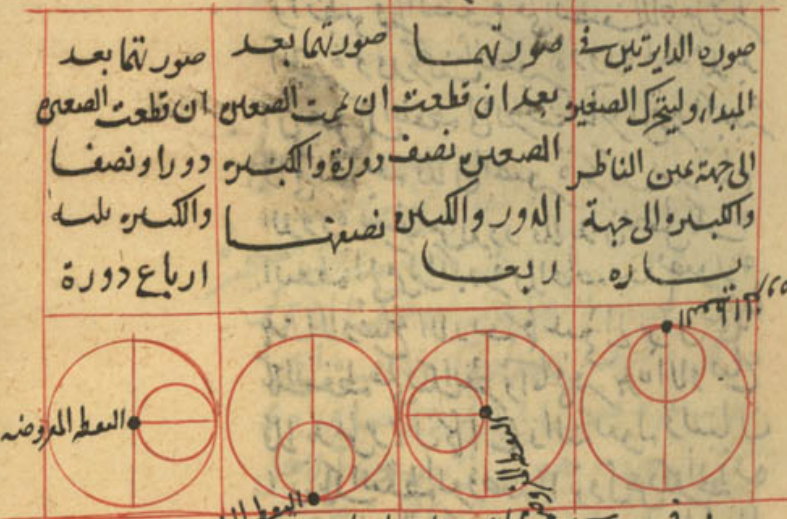 صوره الدايرتين في
المبدا، وليتحرك الصغير
الى جهة يمين الناظر
والكبيره الى جهة
يساره
صورتهما
بعد ان قطعت
الصغيره نصف
الدور والكبيره
ربعا
صورتهما بعد
ان تمت الصغيره
دورة والكبيره
نصفها
صورتهما بعد
ان قطعت الصغيره
دورا ونصفا
والكبيره ثلثه
ارباع دورة
النقطه المفروضه